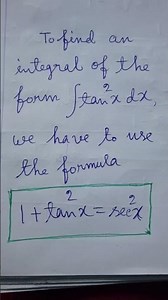 To find an
integral of the
form ∫tan²x dx,
we have to use
the formula
1 + tan²x = sec²x